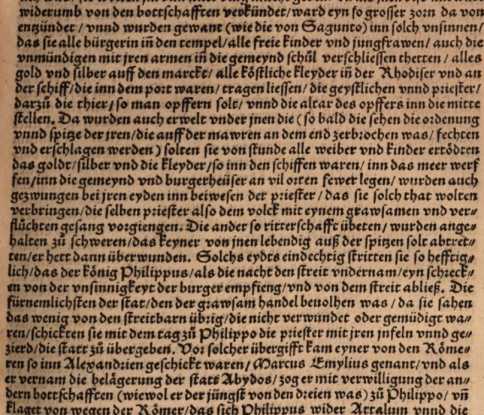 widerumb von den bottschafften verkündet/ward eyn so grosser zorn da von
entzünder / vnnd wurden gewant (wie die von Sagunto) inn solch vnsinnen/
das sie alle bürgerin iñ den tempel/alle freie kinder vnd jungfrawen/ auch die
vnmündigen mit jren armen iñ die gemeynd schůl verschliessen thetten / alles
gold vnd silber auff den marckt/ alle köstliche kleyder in der Rhodiser vnd an
der schiff/die inn dem port waren/ tragen liessen/ die geystlichen vnnd priester/
darzů die thier/ so man opffern solt/ vnnd die altar des opffers inn die mitte
stellen. Da wurden auch erwelt vnder jnen die ( so bald die sehen die ordenung
vnnd spitze der jren/die auff der mawren an dem end zerbrochen was/ fechten
vnd erschlagen werden ) solten sie von stunde alle weiber vnd kinder ertödten
das goldt/silber vnd die kleyder/so inn den schiffen waren/ inn das meer werf
fen/inn die gemeynd vnd burgerheüser an vil orten fewer legen/ wurden auch
gezwungen bei jren eyden inn beiwesen der priester / das sie solch that wolten
verbringen/die selben priester also dem volck mit eynem grawsamen vnd ver⸗
flůchten gesang vorgiengen. Die ander so ritterschafft übeten/ wurden ange⸗
halten zů schweren/das keyner von jnen lebendig auß der spitzen solt abtret⸗
ten/er hett dann überwunden. Solchs eydts eindechtig stritten sie so hefftig⸗
lich/das der König Philippus/als die nacht den streit vndernam/eyn schreck⸗
en von der vnsinnigkeyt der burger empfieng/vnd von dem streit abließ. Die
fürnemlichsten der stat/den der grawsam handel beuolhen was / da sie sahen
das wenig von den streitbarn übrig/die nicht verwundet oder gemüdigt wa⸗
ren/schickten sie mit dem tag zů Philippo die priester mit jren jnfeln vnnd ge⸗
zierd/die statt zů übergeben. Vor solcher übergifft kam eyner von den Röme⸗
ren so inn Alexandrien geschickt waren / Marcus Emylius genant/vnd als
er vernam die belägerung der stats Abydos/ zog er mit verwilligung der an⸗
dern bottschafften (wiewol er der jüngst von den dreien was) zů Philippo/ vñ
klaget von wegen der Römer/das sich Philippus wider Attalum vnd die